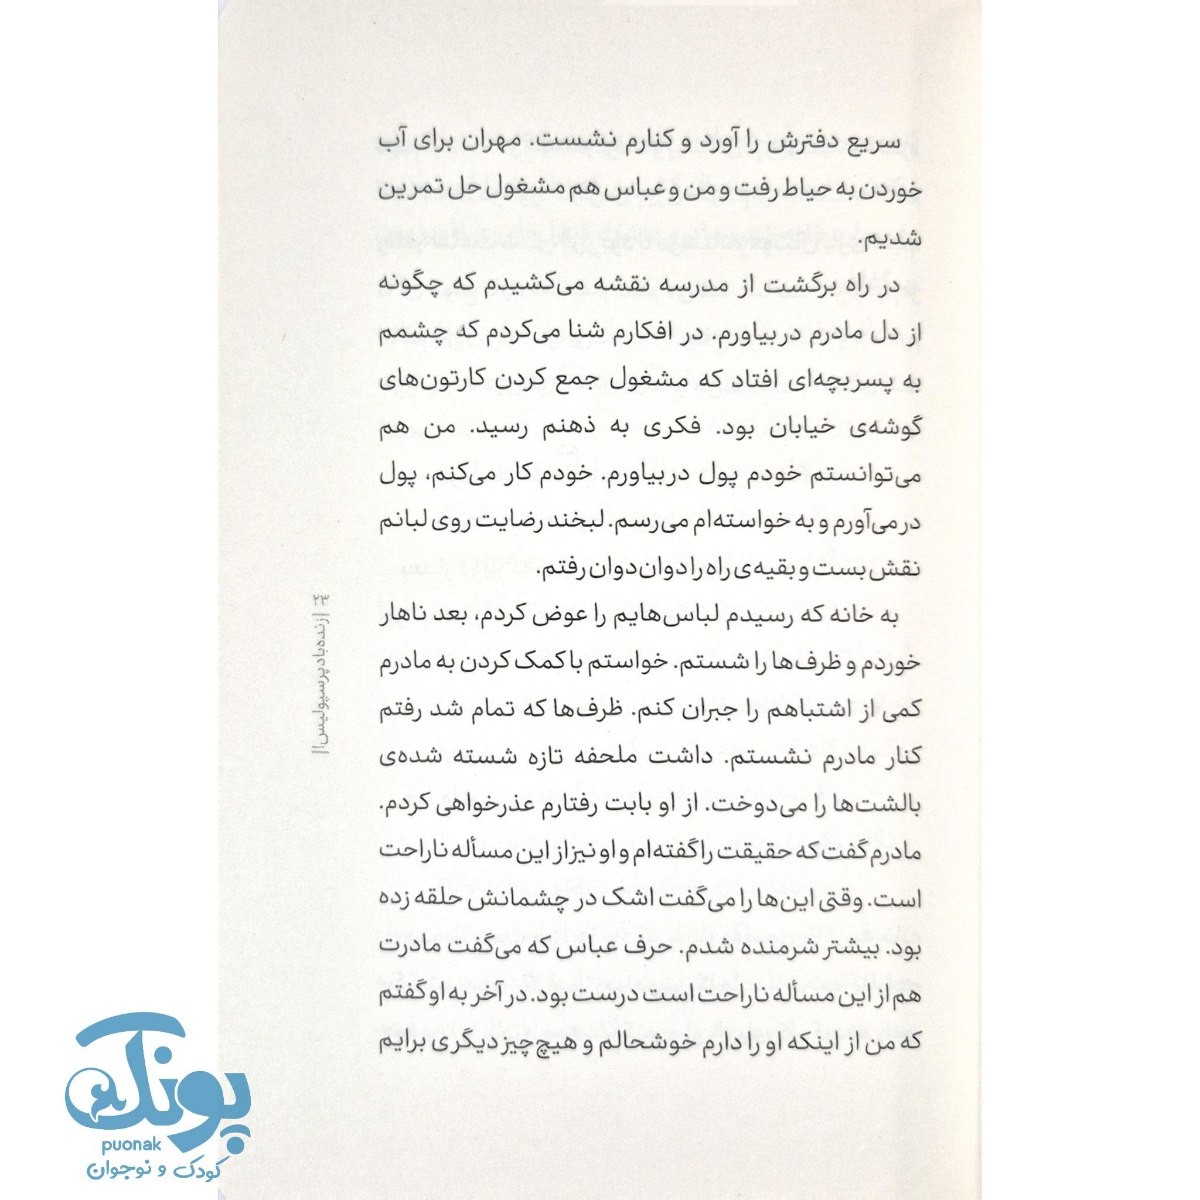 سریع دفترش را آورد و کنارم نشست. مهران برای آب
خوردن به حیاط رفت و من و عباس هم مشغول حل تمرین
شدیم.
در راه برگشت از مدرسه نقشه می‌کشیدم که چگونه
از دل مادرم دربیاورم. در افکارم شنا می‌کردم که چشمم
به پسربچه‌ای افتاد که مشغول جمع کردن کارتون‌های
گوشه‌ی خیابان بود. فکری به ذهنم رسید. من هم
می‌توانستم خودم پول دربیاورم. خودم کار می‌کنم، پول
درمی‌آورم و به خواسته‌ام می‌رسم. لبخند رضایت روی لبانم
نقش بست و بقیه‌ی راه را دوان دوان رفتم.
به خانه که رسیدم لباس‌هایم را عوض کردم، بعد ناهار
خوردم و ظرف‌ها را شستم. خواستم با کمک کردن به مادرم
کمی از اشتباهم را جبران کنم. ظرف‌ها که تمام شد رفتم
کنار مادرم نشستم. داشت ملحفه تازه شسته شده‌ی
بالشت‌ها را می‌دوخت. از او بابت رفتارم عذرخواهی کردم.
مادرم گفت که حقیقت را گفته‌ام و او نیز از این مسأله ناراحت
است. وقتی این‌ها را می‌گفت اشک در چشمانش حلقه زده
بود. بیشتر شرمنده شدم. حرف عباس که می‌گفت مادرت
هم از این مسأله ناراحت است درست بود. در آخر به او گفتم
که من از اینکه او را دارم خوشحالم و هیچ‌چیز دیگری برایم
۲۳ |زنده‌باد پرسپولیس!|
پونک
puonak
کودک و نوجوان